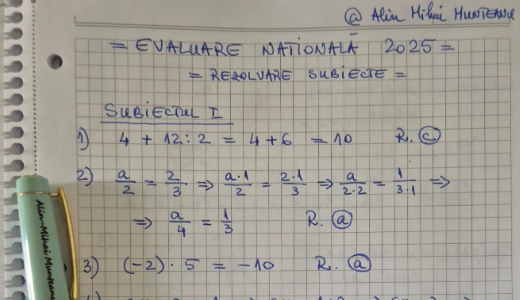 @ Alin Mihai MUNTEANU
= EVALUARE NATIONALĂ 2025 =
= REZOLVARE SUBIECTE =
SUBIECTUL I
1) 4 + 12 : 2 = 4 + 6 = 10 R. ⓒ
2) a/2 = 2/3 ⇒ a·1/2 = 2·1/3 ⇒ a/2·2 = 1/3·1 ⇒
⇒ a/4 = 1/3 R. ⓐ
3) (-2) · 5 = -10 R. ⓐ
Alin-Mihai Munteanu